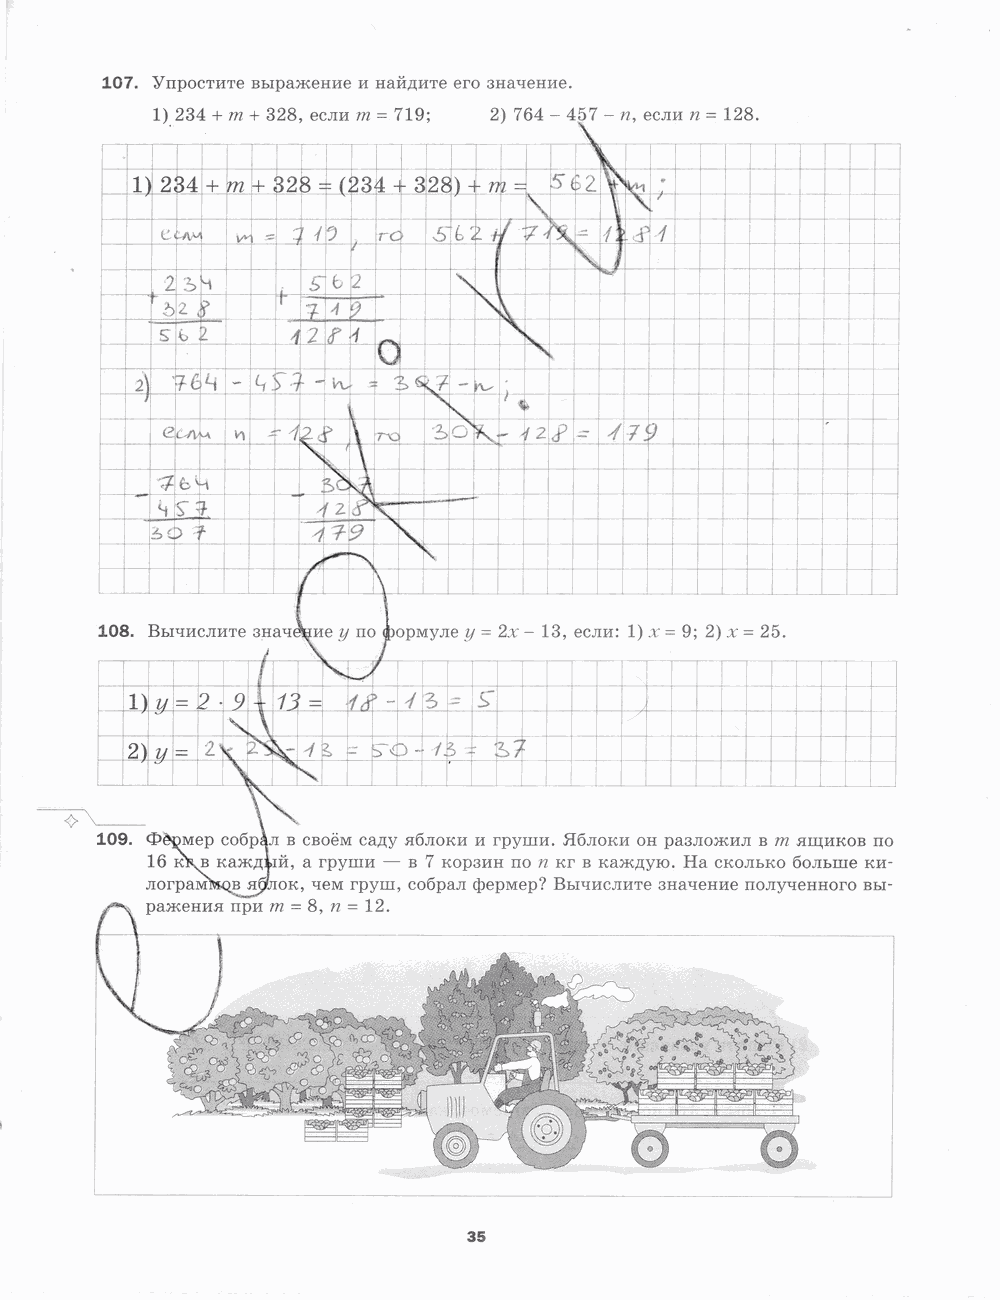 107. Упростите выражение и найдите его значение.
1) 234 + m + 328, если m = 719; 2) 764 – 457 – n, если n = 128.
1) 234 + m + 328 = (234 + 328) + m = 562 + m;
если m = 719, то 562 + 719 = 1281
+ 234 + 562
328 719
562 1281
2) 764 - 457 - n = 307 - n;
если n = 128, то 307 - 128 = 179
- 764 - 307
457 128
307 179
108. Вычислите значение y по формуле y = 2x – 13, если: 1) x = 9; 2) x = 25.
1) y = 2 · 9 – 13 = 18 - 13 = 5
2) y = 2 · 25 - 13 = 50 - 13 = 37
109. Фермер собрал в своём саду яблоки и груши. Яблоки он разложил в m ящиков по
16 кг в каждый, а груши — в 7 корзин по n кг в каждую. На сколько больше ки-
лограммов яблок, чем груш, собрал фермер? Вычислите значение полученного вы-
ражения при m = 8, n = 12.
35